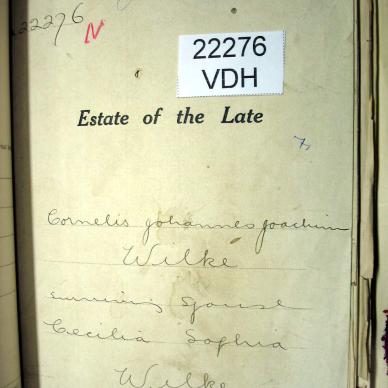 22276
N
22276
VDH
Estate of the Late
Cornelis Johannes Joachim
Wilke
surviving spouse
Cecilia Sophia
Wilke